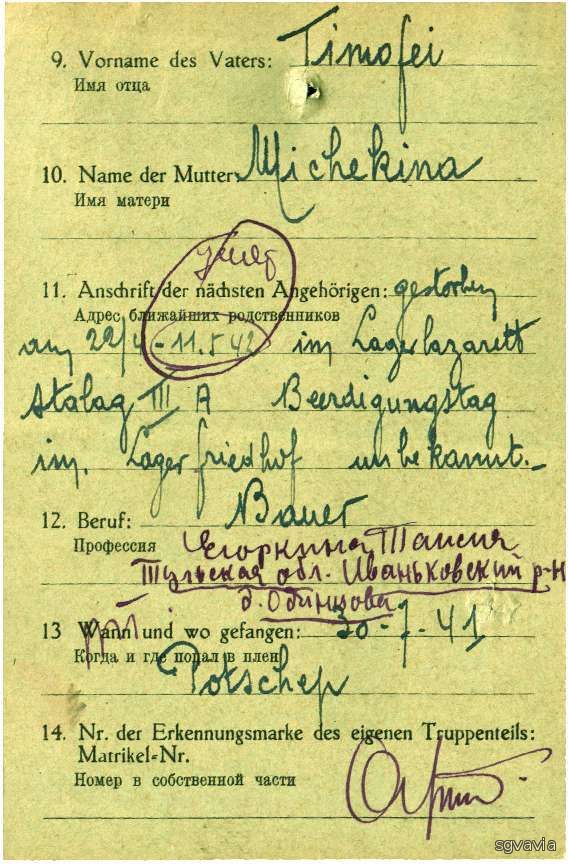 9. Vorname des Vaters: Timofei
Имя отца
10. Name der Mutter: Michekina
Имя матери
умер
11. Anschrift der nächsten Angehörigen: gestorben
Адрес ближайших родственников
am 22/4 - 11.5 42 im Lagerlazarett
Stalag III A Beerdigungstag
im. Lagerfriedhof unbekannt.-
12. Beruf: Bauer
Профессия Егоркина Таисия
Тульская обл. Иваньковский р-н
д. Обинцова
13 Wann und wo gefangen: 30-7-41
Когда и где попал в плен
Potschep
14. Nr. der Erkennungsmarke des eigenen Truppenteils:
Matrikel-Nr.
Номер в собственной части
sgvavia